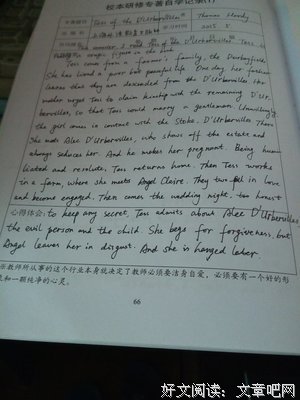 校本研修专著自学记录(十)
Tess of the D'Urbervilles Thomas Hardy
上海外语教育出版社 2015. 5
I read Tess of the D'Urbervilles. Tess is
a tragic figure in the
Tess comes from a farmer's family, the Durbeyfields.
She has lived a poor but peaceful life. One day her father
learns that they are descended from the D'Urbervilles. The
mother urges Tess to claim kinship with the remaining D'Ur-
bervilles, so that Tess could marry a gentleman. Unwillingly
the girl comes in contact with the Stoke. D'Urbervilles. There
She meets Alec D'Urbervilles, who shows off the estate and
always seduces her. And he makes her pregnant. Being humi-
liated and resolute, Tess returns home. Then Tess works
in a farm, where she meets Angel Claire. They two fall in love
and become engaged. Then comes the wedding night. too honest
心得体会: to keep any secret, Tess admits about Alec D'Urbervilles,
the evil person and the child. She begs for forgiveness, but
Angel leaves her in disgust. And she is hanged later.
教师所从事的这个行业本身就决定了教师必须要洁身自爱，必须要有一个好的形
和一颗纯净的心灵。
66
好文阅读：文章吧网